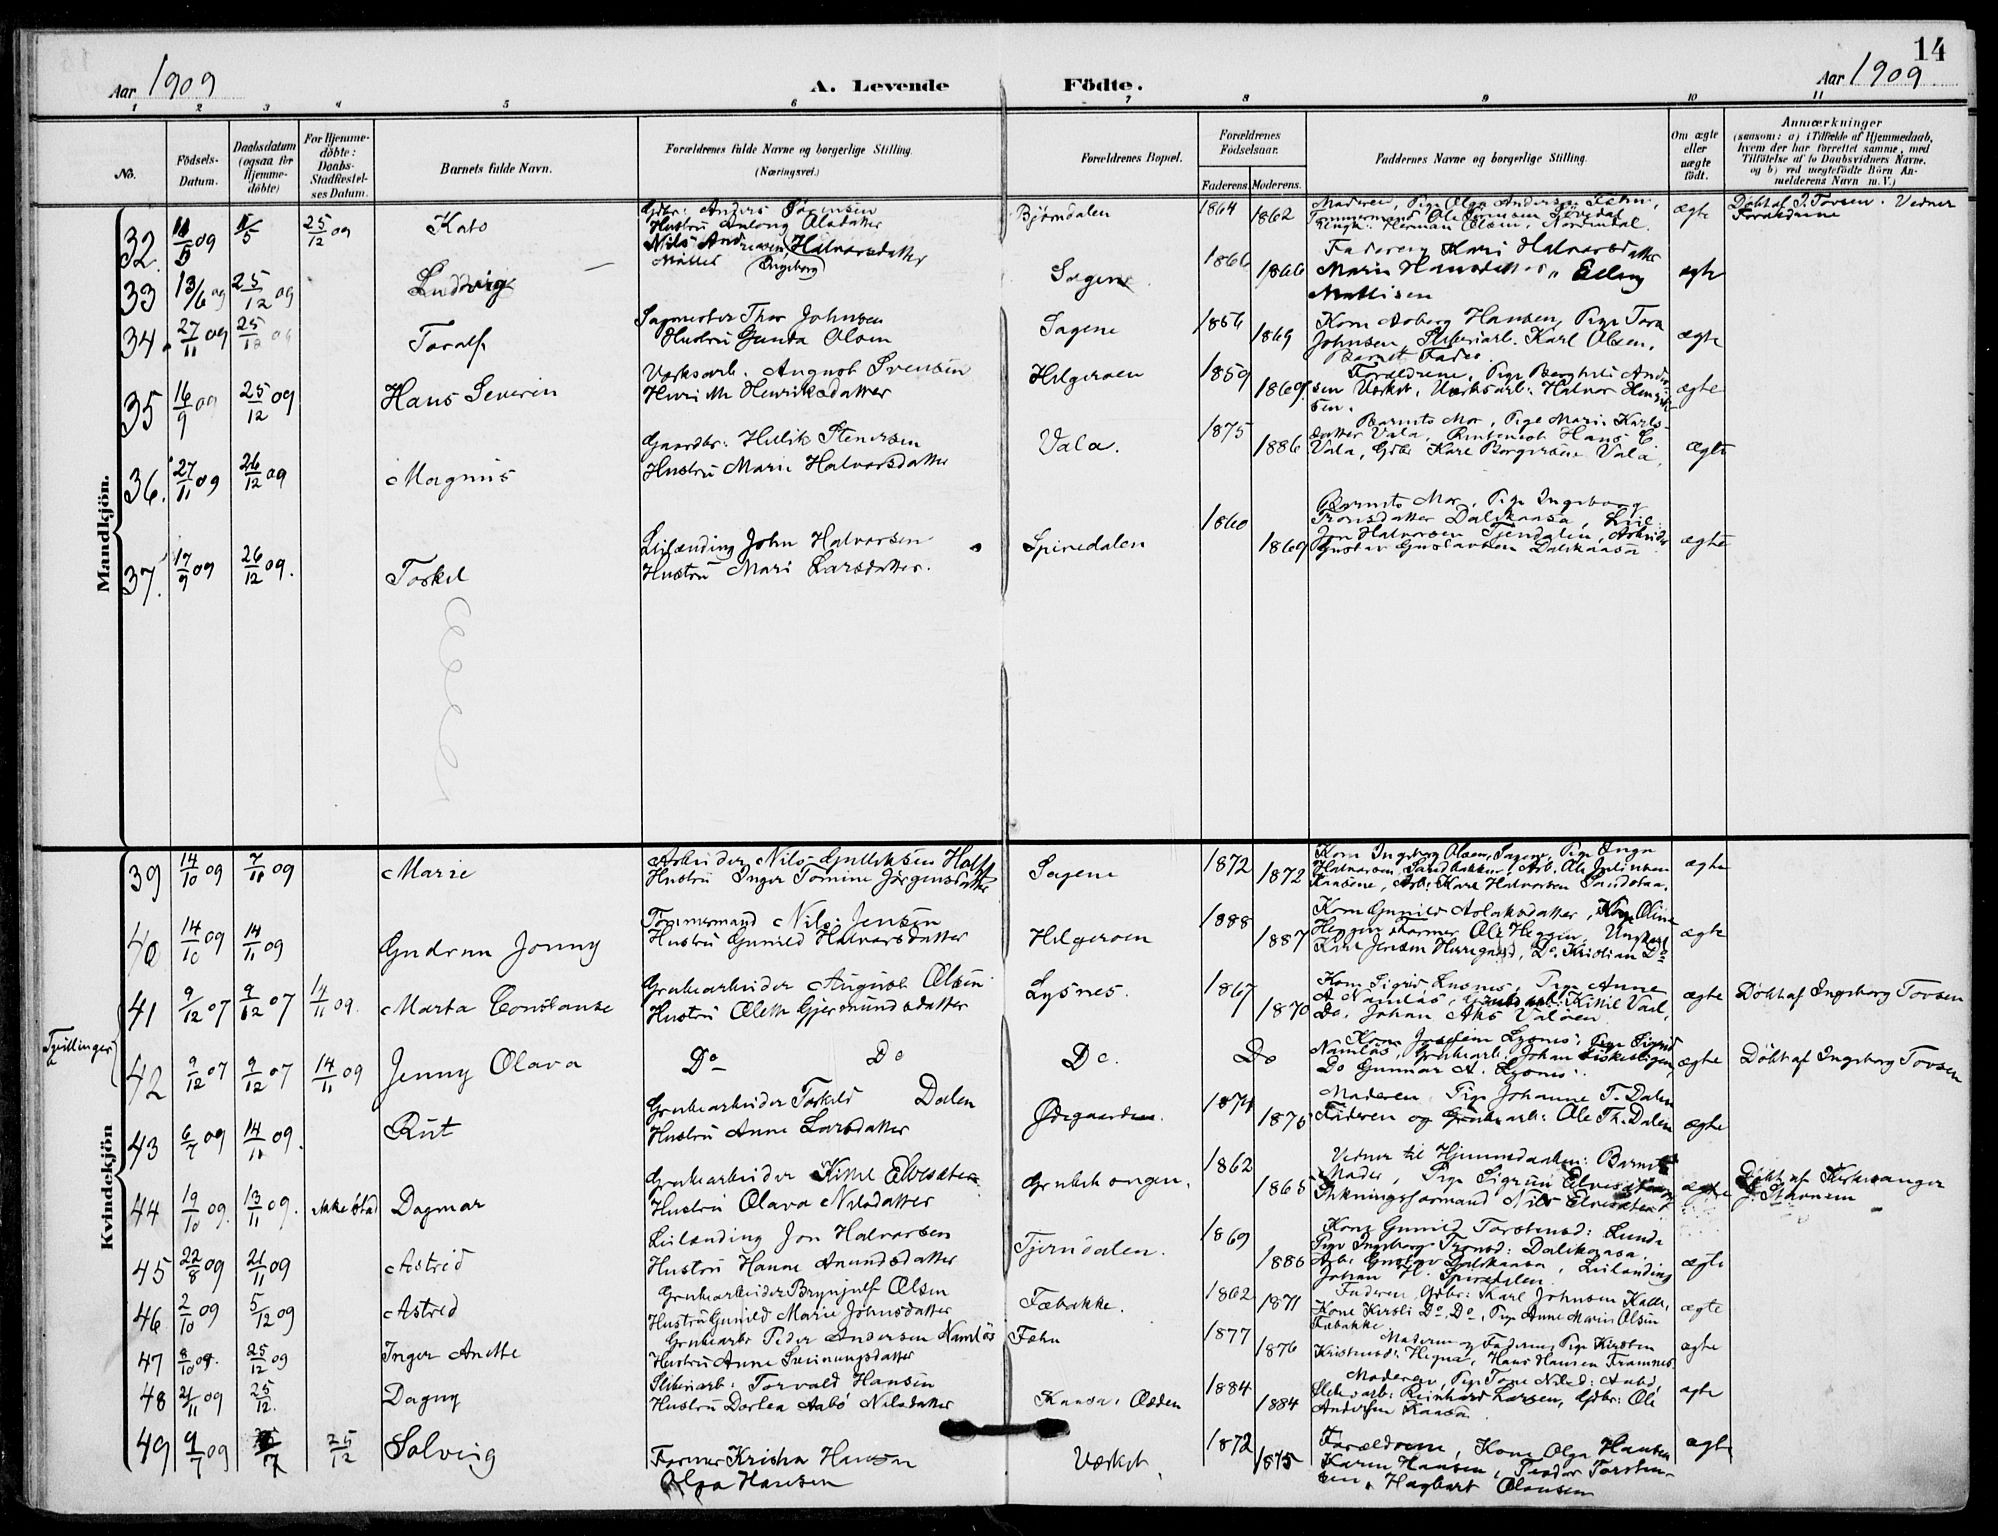 14
Aar 1909
A. Levende Födte.
Aar 1909
1 2 3 4 5 6 7 8 9 10 11
No.
Födsels-Datum.
Daabsdatum (ogsaa för Hjemme-döbte)
For Hjemme-döbte: Daabs-Stadfæstel-ses Datum.
Barnets fulde Navn.
Forældrenes fulde Navne og borgerlige Stilling. (Næringsvei.)
Forældrenes Bopæl.
Forældrenes Födselsaar.
Faderens. Moderens.
Faddernes Navne og borgerlige Stilling.
Om ægte eller uægte födt.
Anmærkninger
(saasom: a) i Tilfælde af Hjemmedaab,
hvem der har forrettet samme, med
Tilföielse af to Daabsvidners Navne.
og b) ved uegtefödte Börn An-
melderens Navn m. V.)
Mandkjön.
32 09 25/12 09 Kato
Gdbr. Anders Sörensen
Hustru Antong Olsdatter
Bjørndalen 1864 1862
Moderen, Pige Olga Anders: Fehn,
Tømmermand Ole Sörensen
Herman Olsen, Nordendal.
ægte
Döbt af P. Torsen. Vidner
Forældrene
33 13/6 09 25/12 09 Ludvig
Nils Andreasen
Møller Ingeborg Halvorsdatter
Sagene 1866 1866
Faderen, Kari Halvorsdatter
Marie Hansdatter, Elling
Mattisen
ægte
34 27/11 09 25/12 09 Toralf
Sagmester Thor Johnsen
Hustru Gunda Olsen
Sagene 1866 1869
Kone Aasborg Hansen, Pige Tora
Johnsen, Sliberiarb. Karl Olsen,
Barnets Fader.
ægte
35 16/9 09 25/12 09 Hans Severin
Værksarb. August Svensen
Henriksdatter
Helgeroen 1859 1869
Forældrene, Pige Berghild Ander-
sen Værket, Værksarb: Halvor Henrik-
sen.
ægte
36. 27/11 09 26/12 09 Magnus
Gaardbr: Helik Stenersen
Hustru Marie Halvorsdatter
Vala. 1875 1886
Barnets Mor, Pige Marie Karls-
datter Vala, Hans C.
Vala, Gdbr Karl Borgersen Vala.
ægte
37. 17/9 09 26/12 09. Torkel
Leilænding John Halvorsen
Hustru Mari Larsdatter.
Spiredalen 1860 1869
Barnets Mor, Pige Ingeborg
Tronsdatter Dalskaasa, Leil:
Jon Halvorsen Tjendalen, Arbeider
Gustav Gustavsen Dalskaasa
ægte
Kvindekjön
39 14/10 09 7/11 09 Marie
Arbeider Nils Gulleksen
Hustru Inger Tomine Jørgensdatter
Sagene 1872 1872
Kone Ingeborg Olsen, Sagene, Pige Inga
Halvorsen Sandbakken, Arb. Ole Juliussen
Kaasene, Arb: Karl Halvorsen Sandstaa.
ægte
40 14/10 09 14/11 09 Gudrun Jonny
Tømmermand Nils Jensen
Hustru Gunild Halvorsdatter
Helgeroen 1888 1887
Kone Gunild Aslaksdatter, Kone Oline
Heggen Former Ole Heggen, Ungkarl
Karl Jensen Herregaard, Do. Kristian Do
ægte
Tvillinger
41 9/12 07 9/12 07 14/11 09. Marta Constanse
Grubearbeider August Olsen
Hustru Oleth Gjermundsdatter
Lysnes. 1867 1870
Kone Sigrid Lysnes, Pige Anne
A Namlös, Grubearb: Kittil Vaal,
Do. Johan Aks Valöen
ægte
Döbt af Ingeborg Tovsen
42 9/12 07 9/12 07 14/11 09 Jenny Olava
Do Do Do. Do
Kone Josefine Lysnes, Pige Sigrid
Namlös, Grubearb. Johan
Do Gunnar A. Lysnes.
ægte
Döbt af Ingeborg Tovsen
43 6/7 09 14/11 09. Rut
Grubearbeider Torkild Dalen
Hustru Anne Larsdatter
Ødegaarden. 1874 1875
Moderen, Pige Johanne T. Dalen
Faderen og Grubearb: Ole Th. Dalen
ægte
44 19/10 09. 13/11 09. Dagmar
Grubearbeider Kittil Elvesæter
Hustru Olava Nilsdatter
Grubekongen. 1862 1865
Vidner til Hjemmedaaben: Barnets
Moder, Pige Sigrun Elvesæter
Stikningsformand Nils Elvesæter
ægte
Döbt af Kirkesanger
J. Stavnsen
45 22/8 09 21/11 09 Astrid
Leilænding Jon Halvorsen
Hustru Hanne Anundsdatter
Tjerndalen. 1869 1886
Kone Gunild Torstensd: Lunde
Pige Ingeborg Tronsd: Dalskaasa
Arb: Gustav Dalskaasa, Leilænding
Johan H. Spiredalen
ægte
46 2/10 09 5/12 09 Astrid
Grubearbeider Brynjulf Olsen
Hustru Gunild Marie Johnsdatter
Fæbakke. 1862 1871
Faderen, Gdbr: Karl Johnsen
Kone Kirsti Do, Do, Pige Anne Marie Olsen
Fæbakke
ægte
47 8/10 09. 25/12 09 Inger Anette
Grubearb: Peder Andersen Namlös
Hustru Anne Sveinungsdatter
Fehn 1877 1876
Moderen og Faderen, Pige Kirsten
Kristensd: Hegna, Hans Hansen Framnes
ægte
48 21/11 09 25/12. Dagny
Sliberiarb: Torvald Hansen
Hustru Dortea Aabö Nilsdatter
Kaasa, Olsden 1884 1884
Moderen, Pige Tone Nilsd: Aabö,
Sliberiarb: Reinhard Larsen, Gdbr: Ole
Andersen Kaasa
ægte
49 9/7 09 25/12 Solveig
Former Kristen Hansen
Olga Hansen
Værket. 1872 1875
Forældrene, Kone Olga Hansen
Karen Hansen, Teodor Torsten-
sen, Hagbart Olausen
ægte